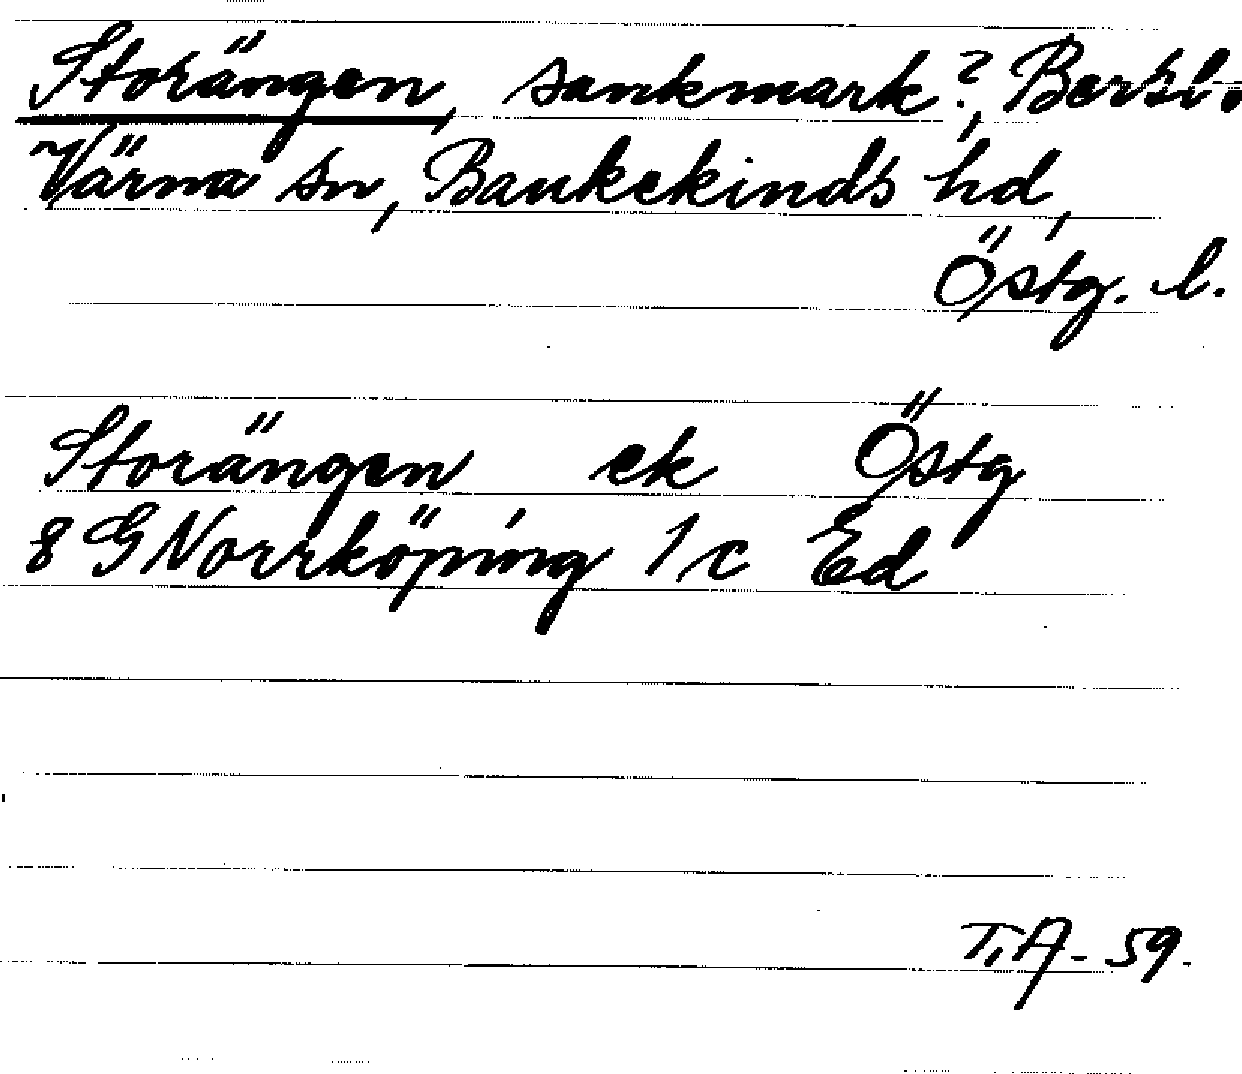 Storängen, sankmark?, Bersi.
Värna sn, Bankekinds hd,
Östg. l.
Storängen ek Östg
8 G Norrköping 1 c Ed
T.A - 59.